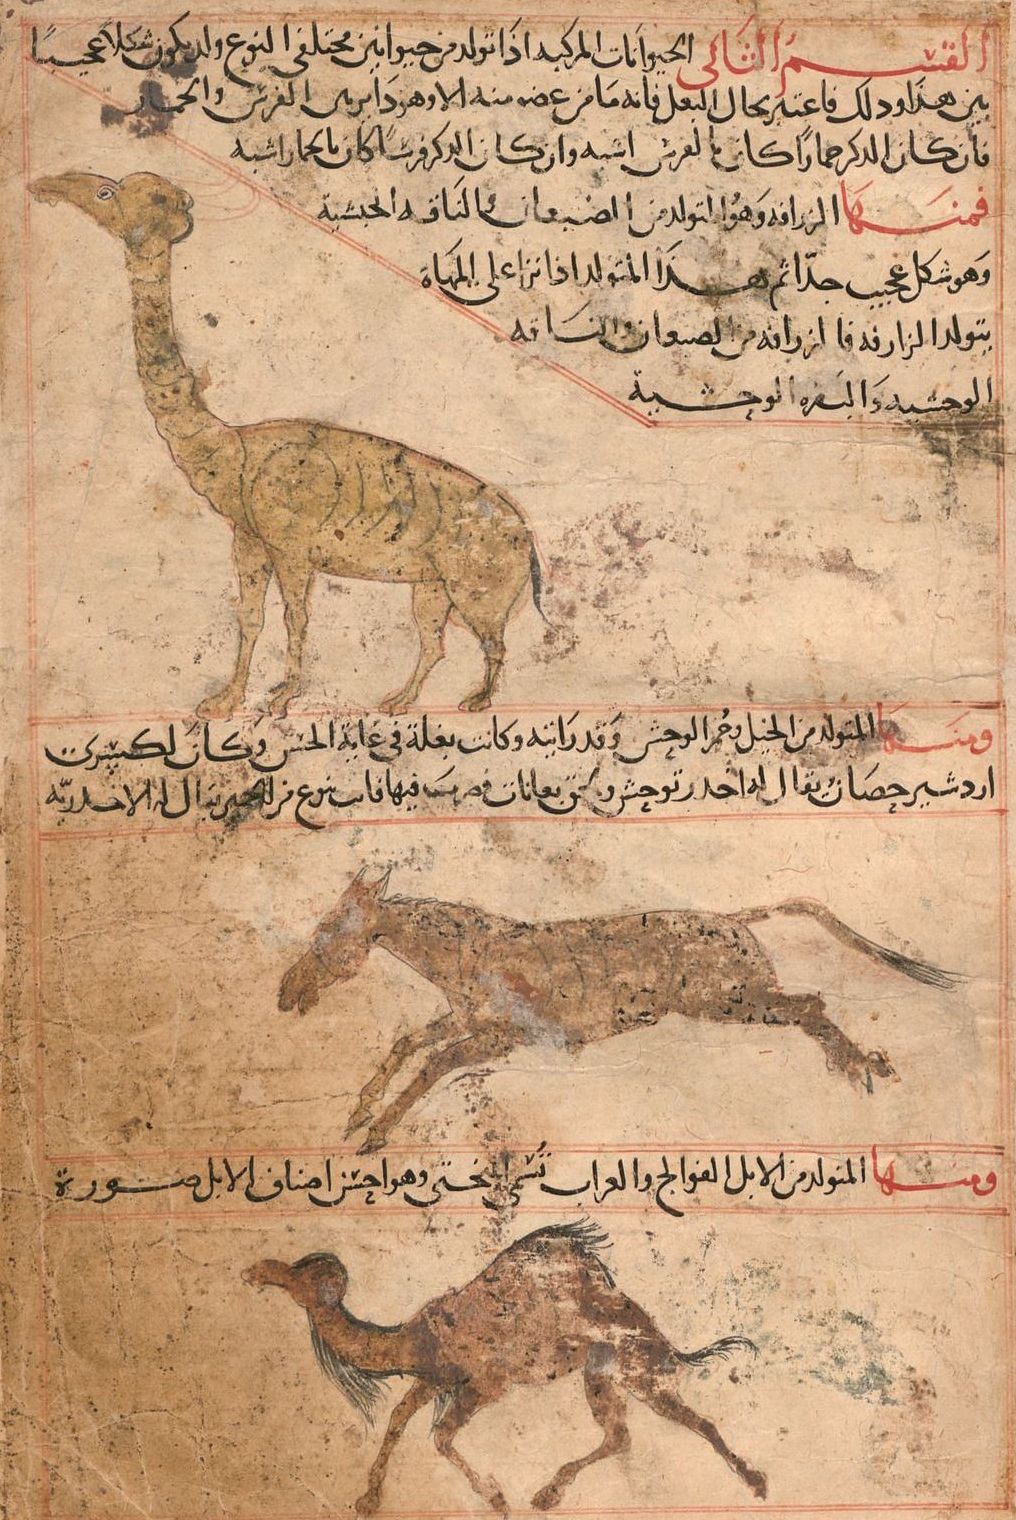 القسم الثاني الحيوانات المركبه اذا تولد من حيوانين مختلفي النوع ولد يكون شكلا عجيبا
بين هذا وذلك فاعتبر بحال البغل فانه ما من عضو منه الا وهو دابر بين الفرس والحمار
فان كان الذكر حمارا كان بالفرس اشبه وان كان الذكر فرسا كان بالحمار اشبه
فمنها الزرافه وهو المتولد من الضبعان والناقه الحبشية
وهو شكل عجيب جدا ثم هذا المتولد اذا نزا على المهاة
يتولد الزارفه فا ازرافه من الضبعان والناقه
الوحشيه والبقره الوحشية
ومنها المتولد من الخيل وحمر الوحش وقد رايته وكانت بغلة في غاية الحسن وكان لكسرى
اردشير حصان يقال له اخدر توحش ولحق بعانات فضرب فيها فان نوع من الحمير يقال له الاخدريه
ومنها المتولد من الابل الفوالج والعراب تسمى البختى وهو احسن اصناف الابل صورة